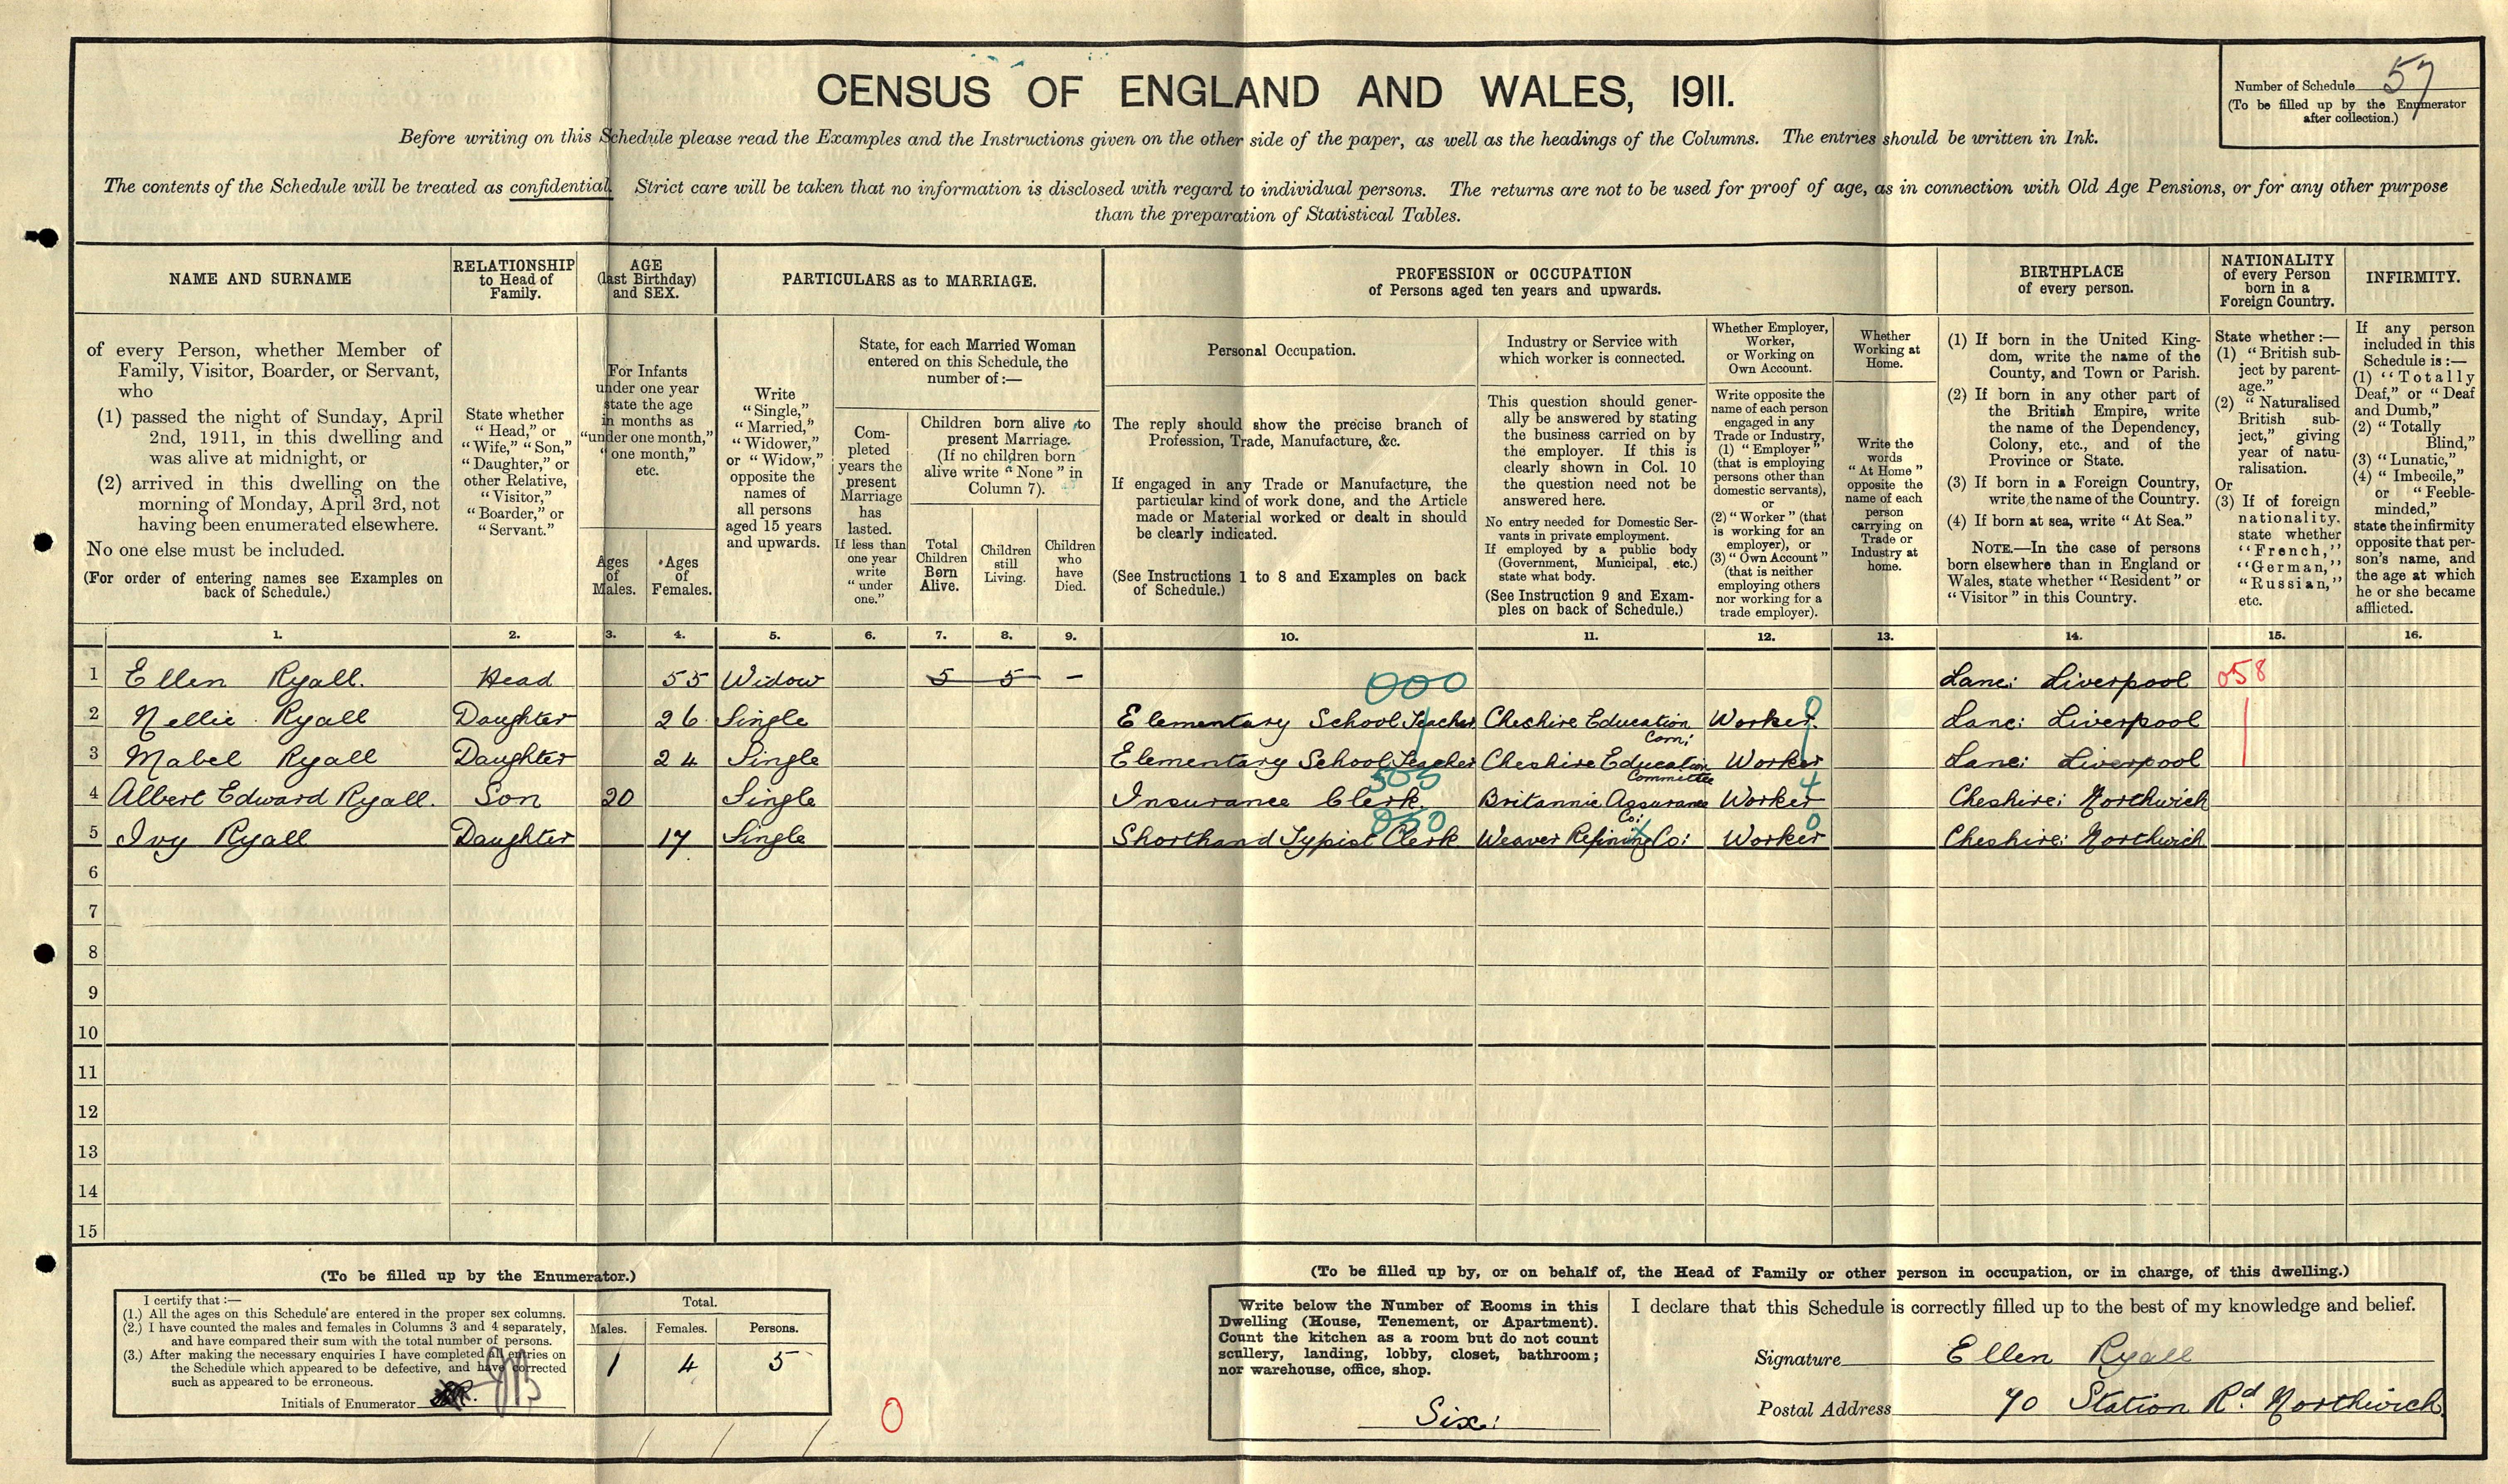 CENSUS OF ENGLAND AND WALES, 1911.
Number of Schedule 57
(To be filled up by the Enumerator
after collection.)
Before writing on this Schedule please read the Examples and the Instructions given on the other side of the paper, as well as the headings of the Columns. The entries should be written in Ink.
The contents of the Schedule will be treated as confidential. Strict care will be taken that no information is disclosed with regard to individual persons. The returns are not to be used for proof of age, as in connection with Old Age Pensions, or for any other purpose
than the preparation of Statistical Tables.
NAME AND SURNAME
of every Person, whether Member of
Family, Visitor, Boarder, or Servant,
who
(1) passed the night of Sunday, April
2nd, 1911, in this dwelling and
was alive at midnight, or
(2) arrived in this dwelling on the
morning of Monday, April 3rd, not
having been enumerated elsewhere.
No one else must be included.
(For order of entering names see Examples on
back of Schedule.)
RELATIONSHIP
to Head of
Family.
State whether
"Head," or
"Wife," "Son,"
"Daughter," or
other Relative,
"Visitor,"
"Boarder," or
"Servant."
AGE
(last Birthday)
and SEX.
For Infants
under one year
state the age
in months as
"under one month,"
"one month,"
etc.
Ages
of
Males.
Ages
of
Females.
PARTICULARS as to MARRIAGE.
Write
"Single,"
"Married,"
"Widower,"
or "Widow,"
opposite the
names of
all persons
aged 15 years
and upwards.
State, for each Married Woman
entered on this Schedule, the
number of:—
Com-
pleted
years the
present
Marriage
has
lasted.
If less than
one year
write
"under
one."
Children born alive to
present Marriage.
(If no children born
alive write "None" in
Column 7).
Total
Children
Born
Alive.
Children
still
Living.
Children
who
have
Died.
PROFESSION or OCCUPATION
of Persons aged ten years and upwards.
Personal Occupation.
The reply should show the precise branch of
Profession, Trade, Manufacture, &c.
If engaged in any Trade or Manufacture, the
particular kind of work done, and the Article
made or Material worked or dealt in should
be clearly indicated.
(See Instructions 1 to 8 and Examples on back
of Schedule.)
Industry or Service with
which worker is connected.
This question should gener-
ally be answered by stating
the business carried on by
the employer. If this is
clearly shown in Col. 10
the question need not be
answered here.
No entry needed for Domestic Ser-
vants in private employment.
If employed by a public body
(Government, Municipal, etc.)
state what body.
(See Instruction 9 and Exam-
ples on back of Schedule.)
Whether Employer,
Worker,
or Working on
Own Account.
Write opposite the
name of each person
engaged in any
Trade or Industry,
(1) "Employer"
(that is employing
persons other than
domestic servants),
or
(2) "Worker" (that
is working for an
employer), or
(3) "Own Account"
(that is neither
employing others
nor working for a
trade employer).
Whether
Working at
Home.
Write the
words
"At Home"
opposite the
name of each
person
carrying on
Trade or
Industry at
home.
BIRTHPLACE
of every person.
(1) If born in the United King-
dom, write the name of the
County, and Town or Parish.
(2) If born in any other part of
the British Empire, write
the name of the Dependency,
Colony, etc., and of the
Province or State.
(3) If born in a Foreign Country,
write the name of the Country.
(4) If born at sea, write "At Sea."
NOTE.—In the case of persons
born elsewhere than in England or
Wales, state whether "Resident" or
"Visitor" in this Country.
NATIONALITY
of every Person
born in a
Foreign Country.
State whether:—
(1) "British sub-
ject by parent-
age."
(2) "Naturalised
British sub-
ject," giving
year of natu-
ralisation.
Or
(3) If of foreign
nationality,
state whether
"French,"
"German,"
"Russian,"
etc.
INFIRMITY.
If any person
included in this
Schedule is:—
(1) "Totally
Deaf," or "Deaf
and Dumb,"
(2) "Totally
Blind,"
(3) "Lunatic,"
(4) "Imbecile,"
or "Feeble-
minded,"
state the infirmity
opposite that per-
son's name, and
the age at which
he or she became
afflicted.
1. 2. 3. 4. 5. 6. 7. 8. 9. 10. 11. 12. 13. 14. 15. 16.
1 Ellen Ryall. Head 55 Widow 5 5 — 000 Lanc: Liverpool 058
2 Nellie Ryall Daughter 26 Single Elementary School Teacher Cheshire Education Com: Worker 0 Lanc: Liverpool
3 Mabel Ryall Daughter 24 Single Elementary School Teacher Cheshire Education Committee Worker Lanc: Liverpool
4 Albert Edward Ryall. Son 20 Single Insurance Clerk 505 Britannic Assurance Co: Worker 4 Cheshire: Northwich
5 Ivy Ryall Daughter 17 Single Shorthand Typist Clerk 050 Weaver Refining Co: Worker 0 Cheshire: Northwich
6
7
8
9
10
11
12
13
14
15
(To be filled up by the Enumerator.)
I certify that:—
(1.) All the ages on this Schedule are entered in the proper sex columns.
(2.) I have counted the males and females in Columns 3 and 4 separately,
and have compared their sum with the total number of persons.
(3.) After making the necessary enquiries I have completed all entries on
the Schedule which appeared to be defective, and have corrected
such as appeared to be erroneous.
Initials of Enumerator
Total.
Males. Females. Persons.
1 4 5
0
(To be filled up by, or on behalf of, the Head of Family or other person in occupation, or in charge, of this dwelling.)
Write below the Number of Rooms in this
Dwelling (House, Tenement, or Apartment).
Count the kitchen as a room but do not count
scullery, landing, lobby, closet, bathroom;
nor warehouse, office, shop.
Six:
I declare that this Schedule is correctly filled up to the best of my knowledge and belief.
Signature Ellen Ryall
Postal Address 70 Station Rd. Northwich